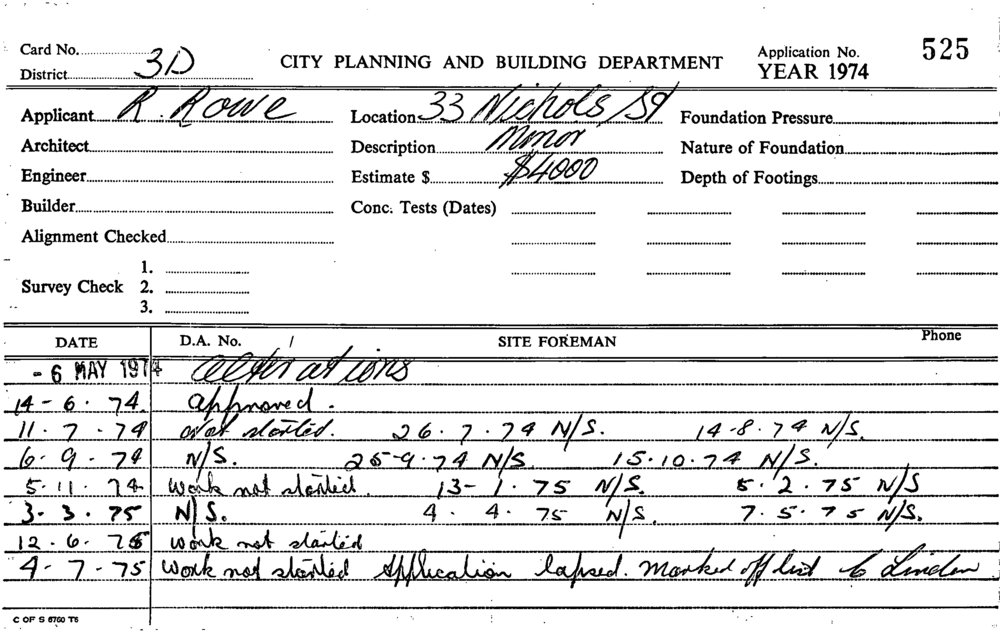 Card No. 3D CITY PLANNING AND BUILDING DEPARTMENT Application No. 525
District YEAR 1974
Applicant R. Rowe Location 33 Nichols St Foundation Pressure
Architect Description Minor Nature of Foundation
Engineer Estimate $ $4000 Depth of Footings
Builder Conc. Tests (Dates)
Alignment Checked
1.
Survey Check 2.
3.
DATE D.A. No. / SITE FOREMAN Phone
- 6 MAY 1974 alterations
14-6.74. approved.
11.7.74 Not started. 26.7.74 N/S. 14-8.74 N/S.
6.9.74 N/S. 25-9.74 N/S. 15.10.74 N/S.
5.11.74. Work not started. 13-1.75 N/S. 5.2.75 N/S
3.3.75 N/S. 4.4.75 N/S. 7.5.75 N/S.
12.6.75 Work not started
4-7-75 Work not started Application lapsed. Marked off list Linden
C OF S 6760 T6